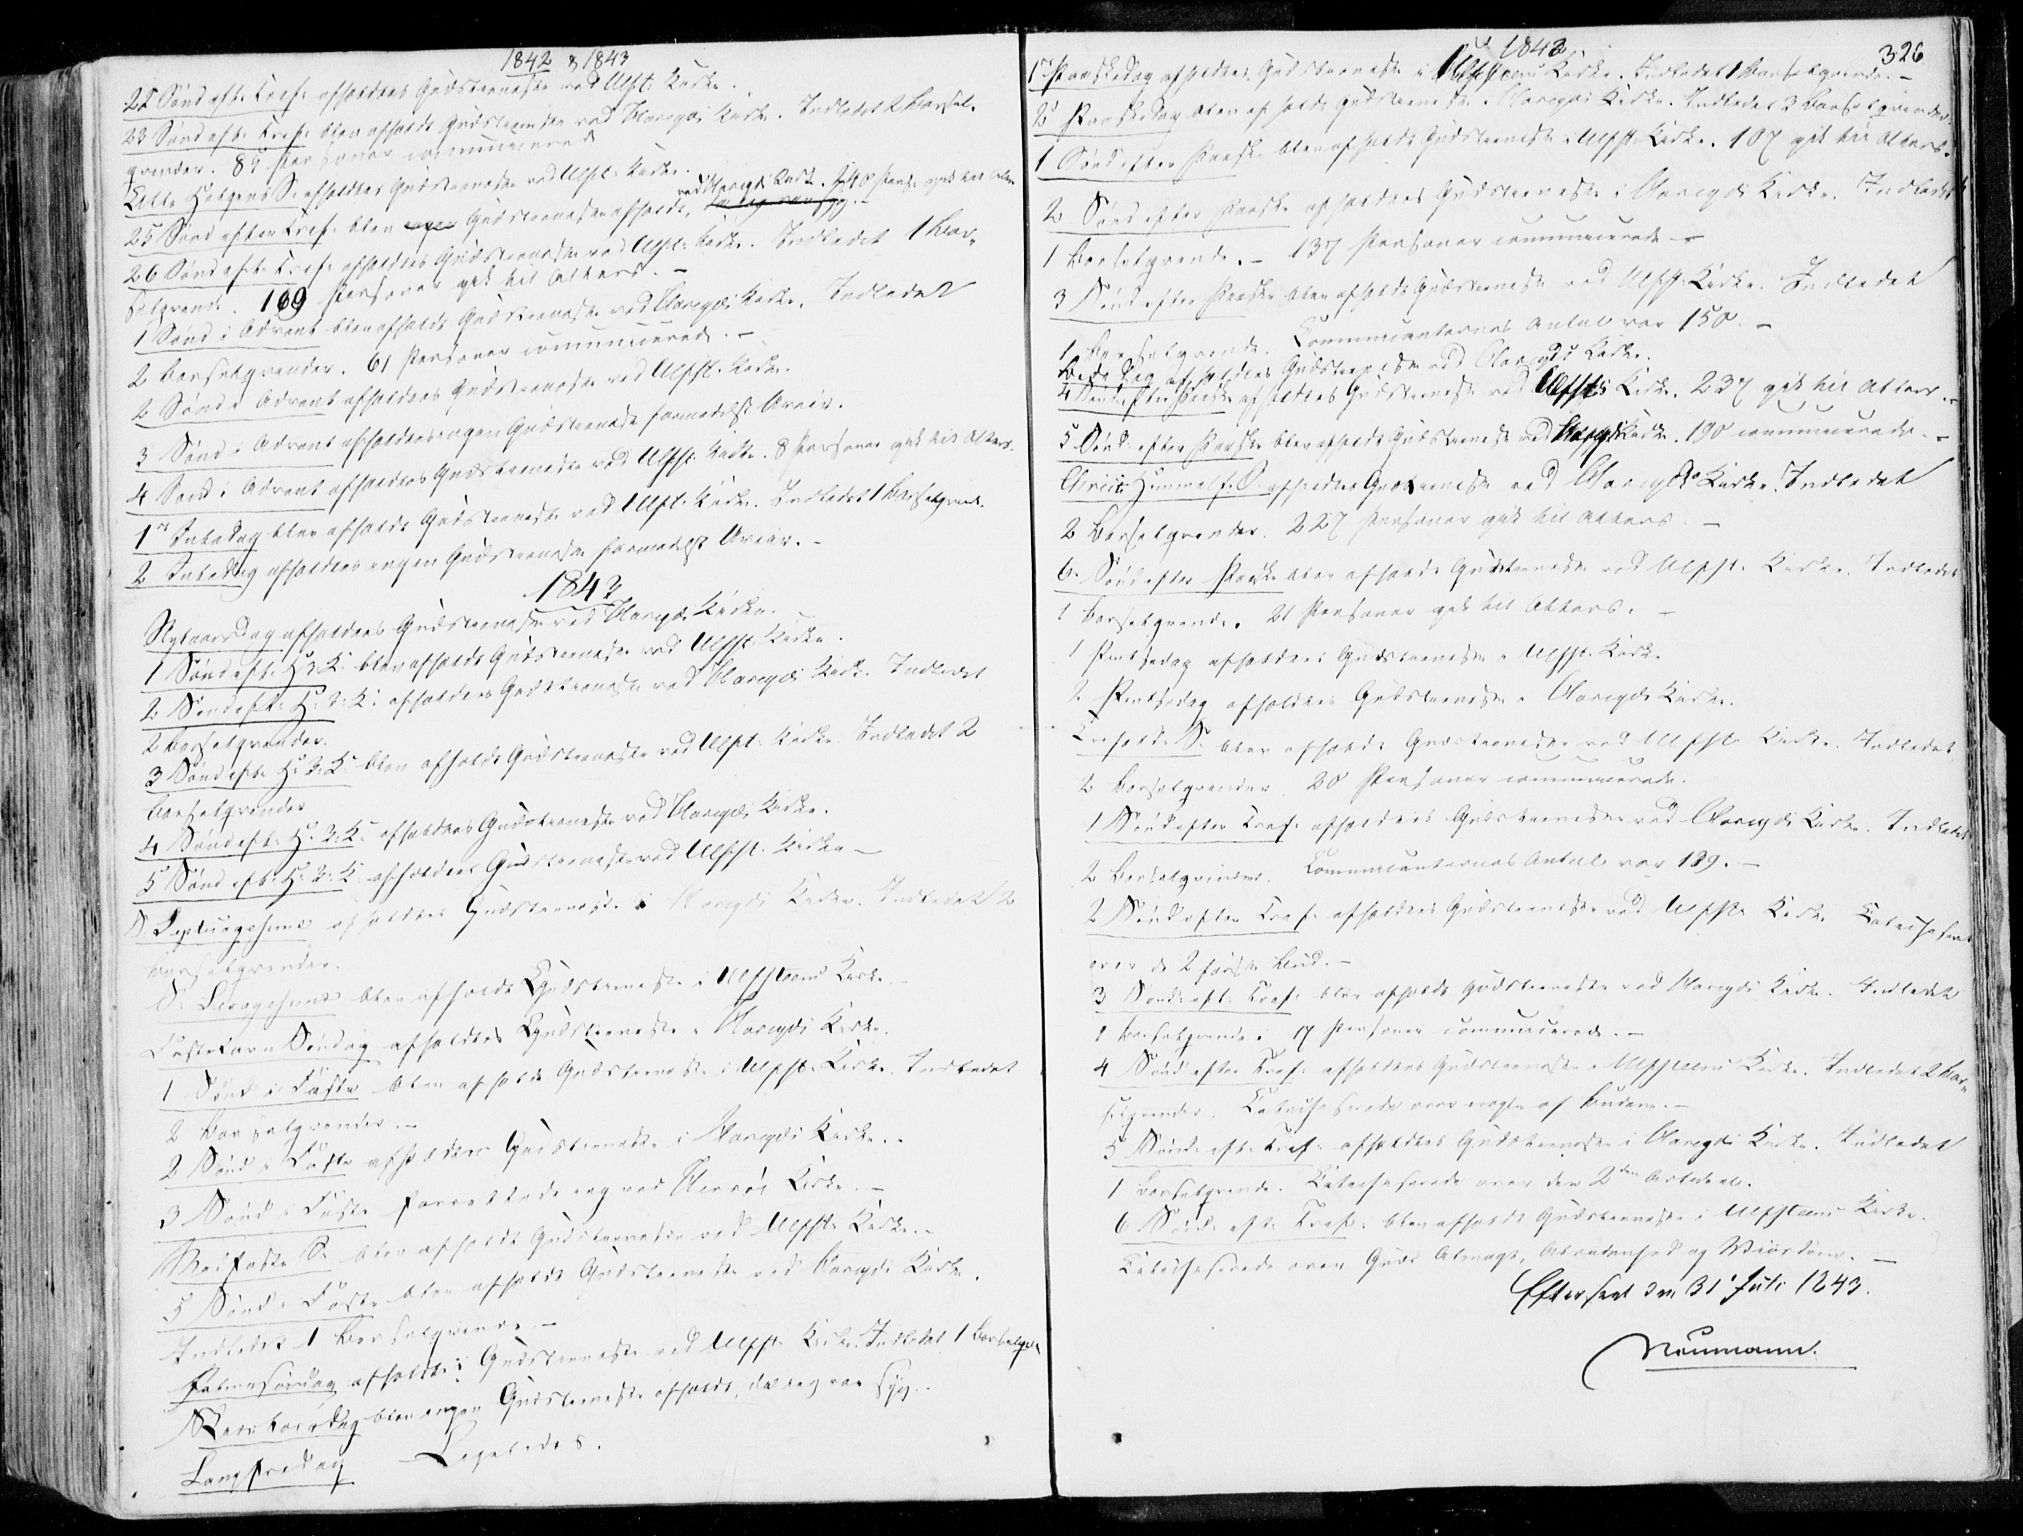 1842 & 1843
22 Sønd. eft. Tref. afholdtes Gudstjeneste ved Ulfst. Kirke.
23 Sønd. eft. Tref. blev afholdt Gudstjeneste ved Kirke. Indledet 2 Barsel-
grender. 89 Personer communicerede
Alle Helgens S. afholdtes Gudstjeneste ved Ulfst. Kirke.
25 Sønd efter Tref. blev Gudstjeneste afholdt, ved Kirke. Pers. gik til Alters
26 Sønd eft. Tref. afholdtes Gudstjeneste ved Ulfst. Kirke. Indledet 1 Bar-
selgrende. 169 Personer gik til Alters. –
1 Sønd i Advent blev afholdt Gudstjeneste ved Kirke. Indledet
2 Barselgrender. 61 Personer communicerede. –
2 Sønd i Advent afholdtes Gudstjeneste ved Ulfst. Kirke.
3 Sønd i Advent afholdtes ingen Gudstjeneste formedelst Uveir.
4 Sønd i Advent afholdtes Gudstjeneste ved Ulfst. Kirke. 8 Personer gik til Alters.
1ste Juledag blev afholdt Gudstjeneste ved Ulfst. Kirke. Indledet 1 Barselgrend.
2 Juledag afholdtes ingen Gudstjeneste formedelst Uveir. –
1843
Nytaarsdag afholdtes Gudstjeneste ved Kirke.
1 Sønd eft. H. 3. K. blev afholdt Gudstjeneste ved Ulfst. Kirke.
2 Sønd eft. H. 3. K. afholdtes Gudstjeneste ved Kirke. Indledet
2 Barselgrender.
3 Sønd eft. H. 3. K. blev afholdt Gudstjeneste ved Ulfst. Kirke. Indledet 2
Barselgrender
4 Sønd eft. H. 3. K. afholdtes Gudstjeneste ved Kirke.
5 Sønd eft. H. 3. K. afholdtes Gudstjeneste ved Ulfst. Kirke –
S. Septuagesima afholdtes Gudstjeneste i Kirke. Indledet 2
Barselgrender.
S. Sexagesima blev afholdt Gudstjeneste i Ulfsteens Kirke.
Fastelavns Søndag afholdtes Gudstjeneste i Kirke.
1 Sønd i Faste blev afholdt Gudstjeneste i Ulfst. Kirke. Indledet
2 Barselgrender. –
2 Sønd i Faste afholdtes Gudstjeneste i Kirke. –
3 Sønd i Faste forrettede jeg ved Herrøe Kirke. –
Midfaste S. blev afholdt Gudstjeneste ved Ulfst. Kirke. –
5 Sønd i Faste blev afholdt Gudstjeneste ved Kirke.
Indledet 1 Barselgrende. –
Palmesøndag afholdtes Gudstjeneste ved Ulfst. Kirke. Indledet 1 Barselgr.
Skjærtorsdag blev ingen Gudstjeneste afholdt, da jeg var syg. –
Langfredag Ligeledes.
1843
326
1ste Paaskedag afholdtes Gudstjeneste i Ulfsteens Kirke. Indledet 1 Barselgrende. –
2d Paaskedag blev afholdt Gudstjeneste i Kirke. Indledet 3 Barselgrender.
1 Sønd efter Paaske blev afholdt Gudstjeneste i Ulfst. Kirke. 107 gik til Alters.
2 Sønd efter Paaske afholdtes Gudstjeneste i Kirke. Indledet
1 Barselgrende. – 137 Personer communicerede –
3 Sønd efter Paaske blev afholdt Gudstjeneste ved Ulfst. Kirke. Indledet
1 Barselgrende. Communicanternes Antal var 150. –
Bededag afholdtes Gudstjeneste ved Kirke.
4 Sønd efter Paaske afholdtes Gudstjeneste ved Ulfst. Kirke. 237 gik til Alters. –
5 Sønd. efter Paaske blev afholdt Gudstjeneste ved Kirke. 190 communicerede. –
Christi Himmelf. D. afholdtes Gudstjeneste ved Kirke. Indledet
2 Barselgrender. 227 Personer gik til Alters. –
6. Sønd efter Paaske blev afholdt Gudstjeneste ved Ulfst. Kirke. Indledet
1 Barselgrende. 21 Personer gik til Alters. –
1 Pintsedag afholdtes Gudstjeneste i Ulfst. Kirke
2 Pintsedag afholdtes Gudstjeneste i Kirke.
Trefold. S. blev afholdt Gudstjeneste ved Ulfst. Kirke. Indledet
2 Barselgrender. 20 Personer communicerede.
1 Sønd efter Tref. afholdtes Gudstjeneste ved Kirke. Indledet
2 Barselgrender. Communicanternes Antal var 129. –
2 Sønd efter Tref. afholdtes Gudstjeneste ved Ulfst. Kirke Catechiseret
over de 2 første Bud. –
3 Sønd. eft. Tref. blev afholdt Gudstjeneste ved Kirke. Indledet
1 Barselgrende. 17 Personer communicerede. –
4 Sønd efter Tref. afholdtes Gudstjeneste i Ulfsteens Kirke. Indledet 2 Bar-
selgrender. Catechiserede over nogle af Budene. –
5 Sønd. eft. Tref. afholdtes Gudstjeneste i Kirke. Indledet
1 Barselgrende. Catechiserede over den 2den Artikel.
6 Sønd. eft. Tref. blev afholdt Gudstjeneste i Ulfsteens Kirke.
Catechiserede over Guds Almagt, Alvidenhed og Viisdom. –
Efterseet den 31' Juli 1843.
Neumann.